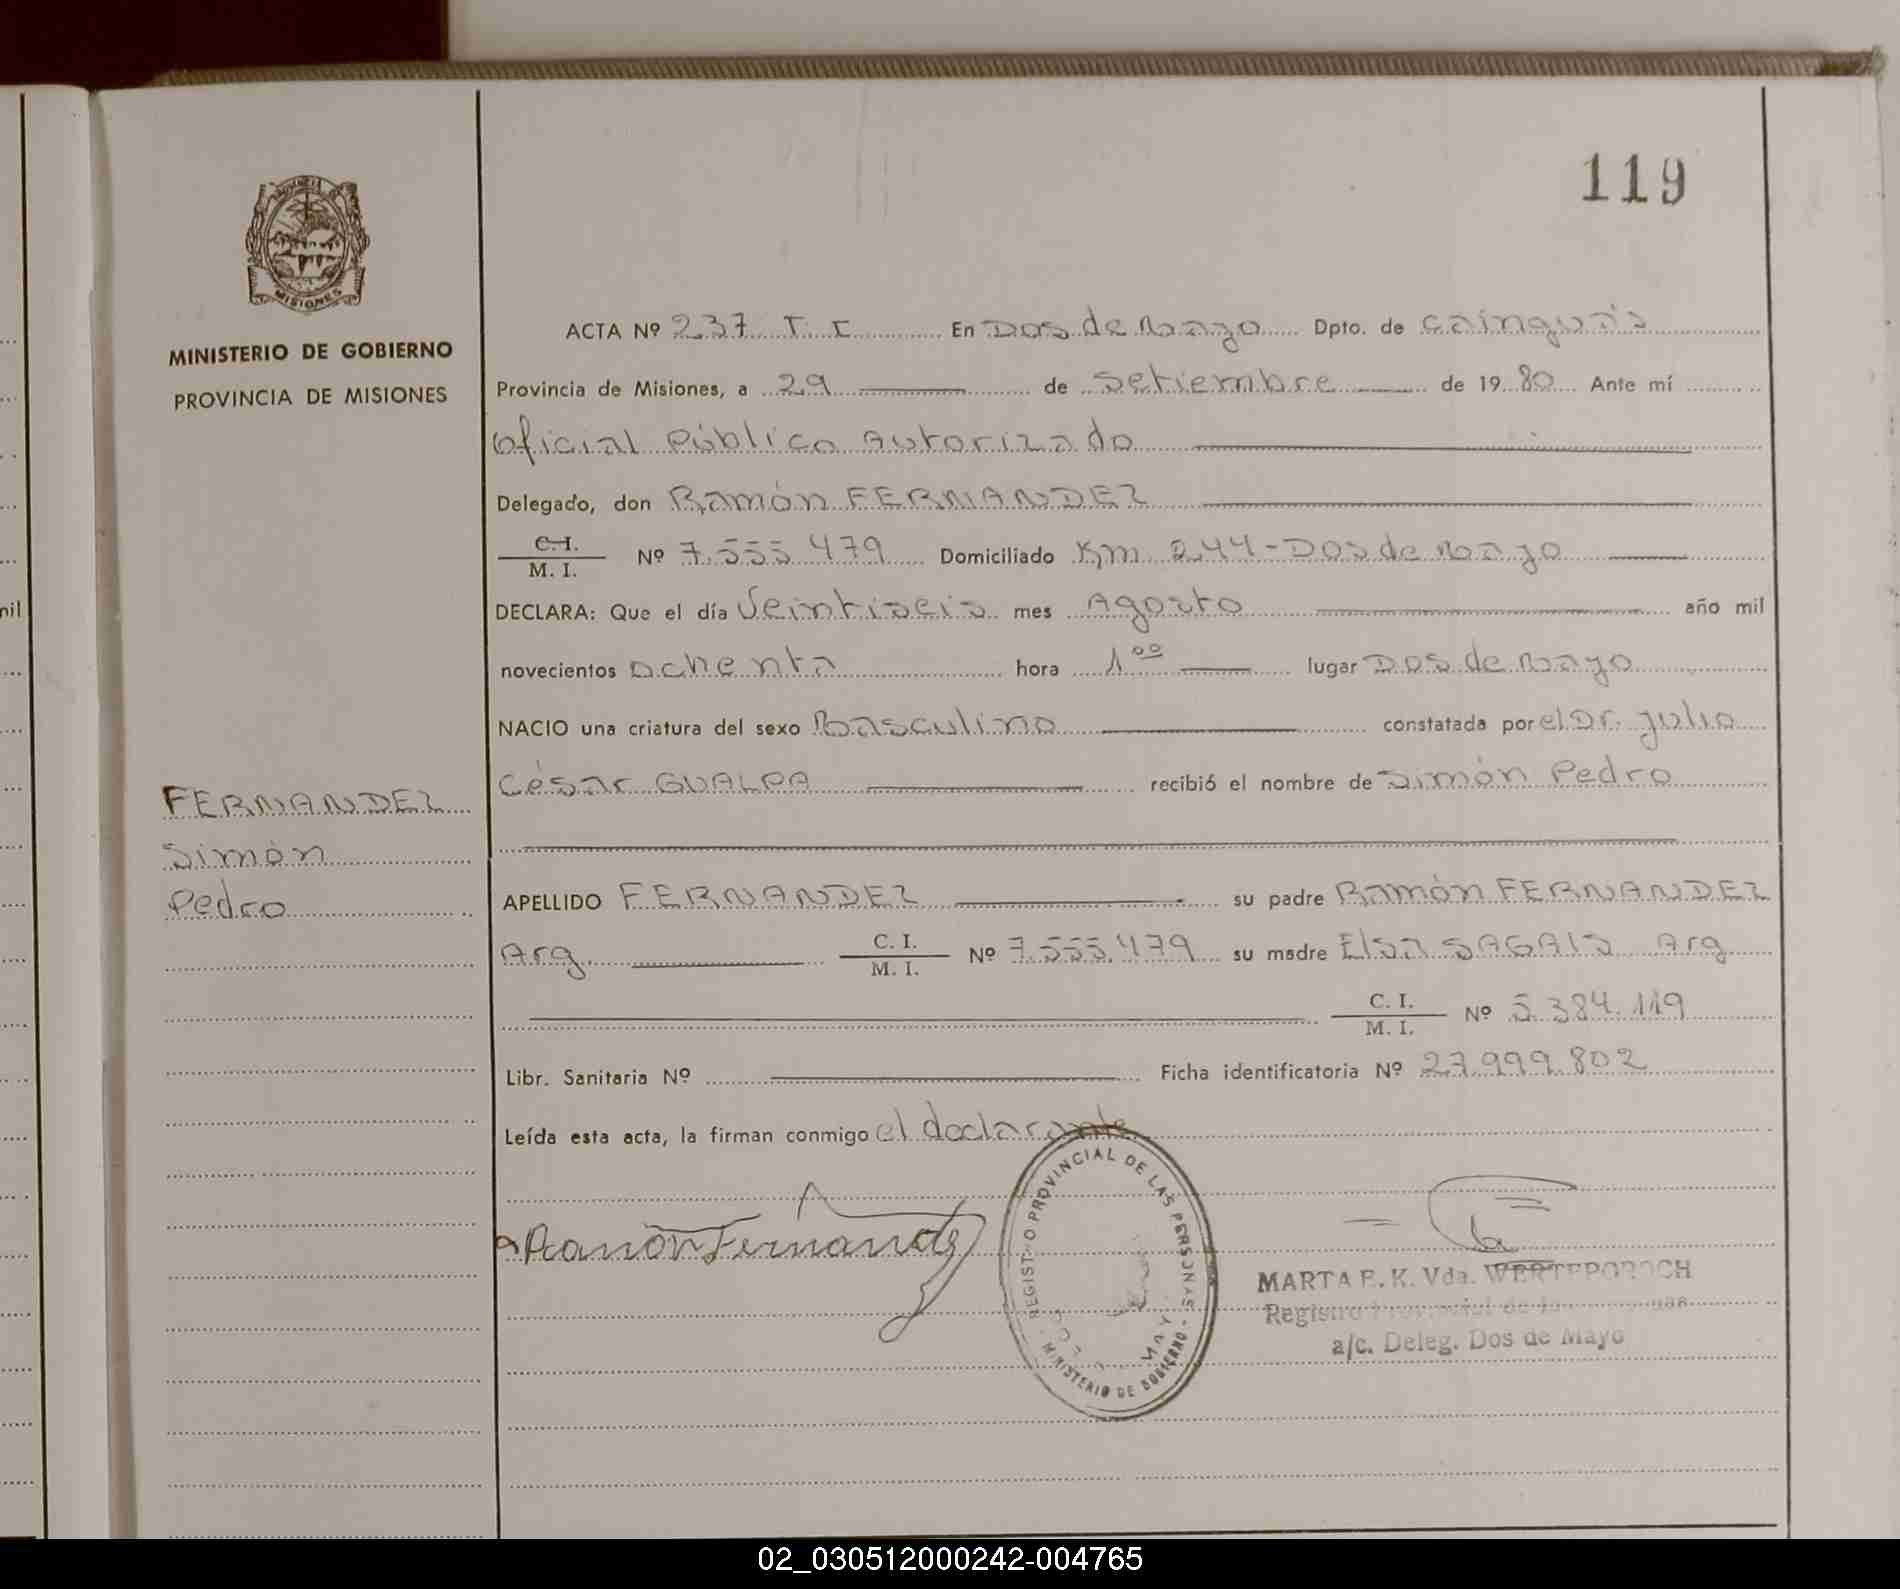 119
PROVINCIA
MISIONES
MINISTERIO DE GOBIERNO
PROVINCIA DE MISIONES
FERNANDEZ
Simón
Pedro
ACTA Nº 237 T. I En Dos de Mayo Dpto. de Cainguás
Provincia de Misiones, a 29 de Setiembre de 1980 Ante mí
Oficial Público Autorizado
Delegado, don Ramón FERNANDEZ
C.I. / M. I. Nº 7.555.479 Domiciliado Km 244-Dos de Mayo
DECLARA: Que el día Veintiseis mes Agosto año mil
novecientos ochenta hora 1 00 lugar Dos de Mayo
NACIO una criatura del sexo Masculino constatada por el Dr. Julio
César GUALPA recibió el nombre de Simón Pedro
APELLIDO FERNANDEZ su padre Ramón FERNANDEZ
Arg. C. I. / M. I. Nº 7.555.479 su madre Elsa SAGAIS Arg
C. I. / M. I. Nº 5.384.119
Libr. Sanitaria Nº Ficha identificatoria Nº 27.999.802
Leída esta acta, la firman conmigo el declarante
Ramón Fernandez
REGISTRO PROVINCIAL DE LAS PERSONAS - MINISTERIO DE GOBIERNO -
MARTA E. K. Vda. WERTEPOROCH
Registro Provincial de las
a/c. Deleg. Dos de Mayo
nil
02_030512000242-004765